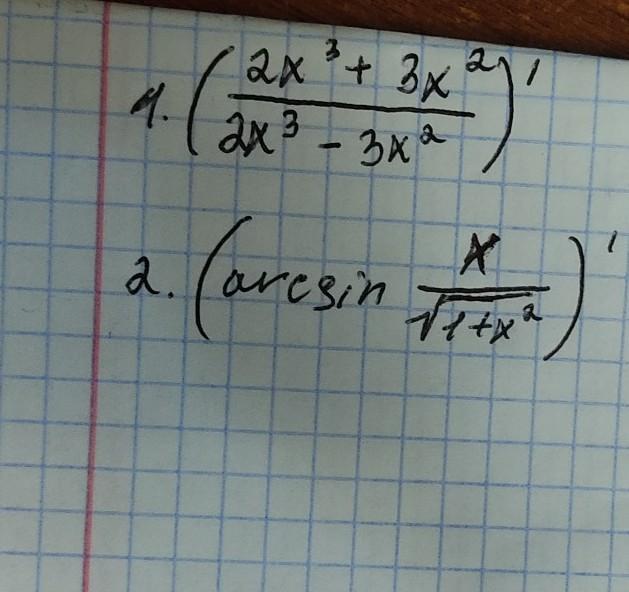 1. ( (2x³ + 3x²) / (2x³ - 3x²) )'
2. ( arcsin x / √(1+x²) )'